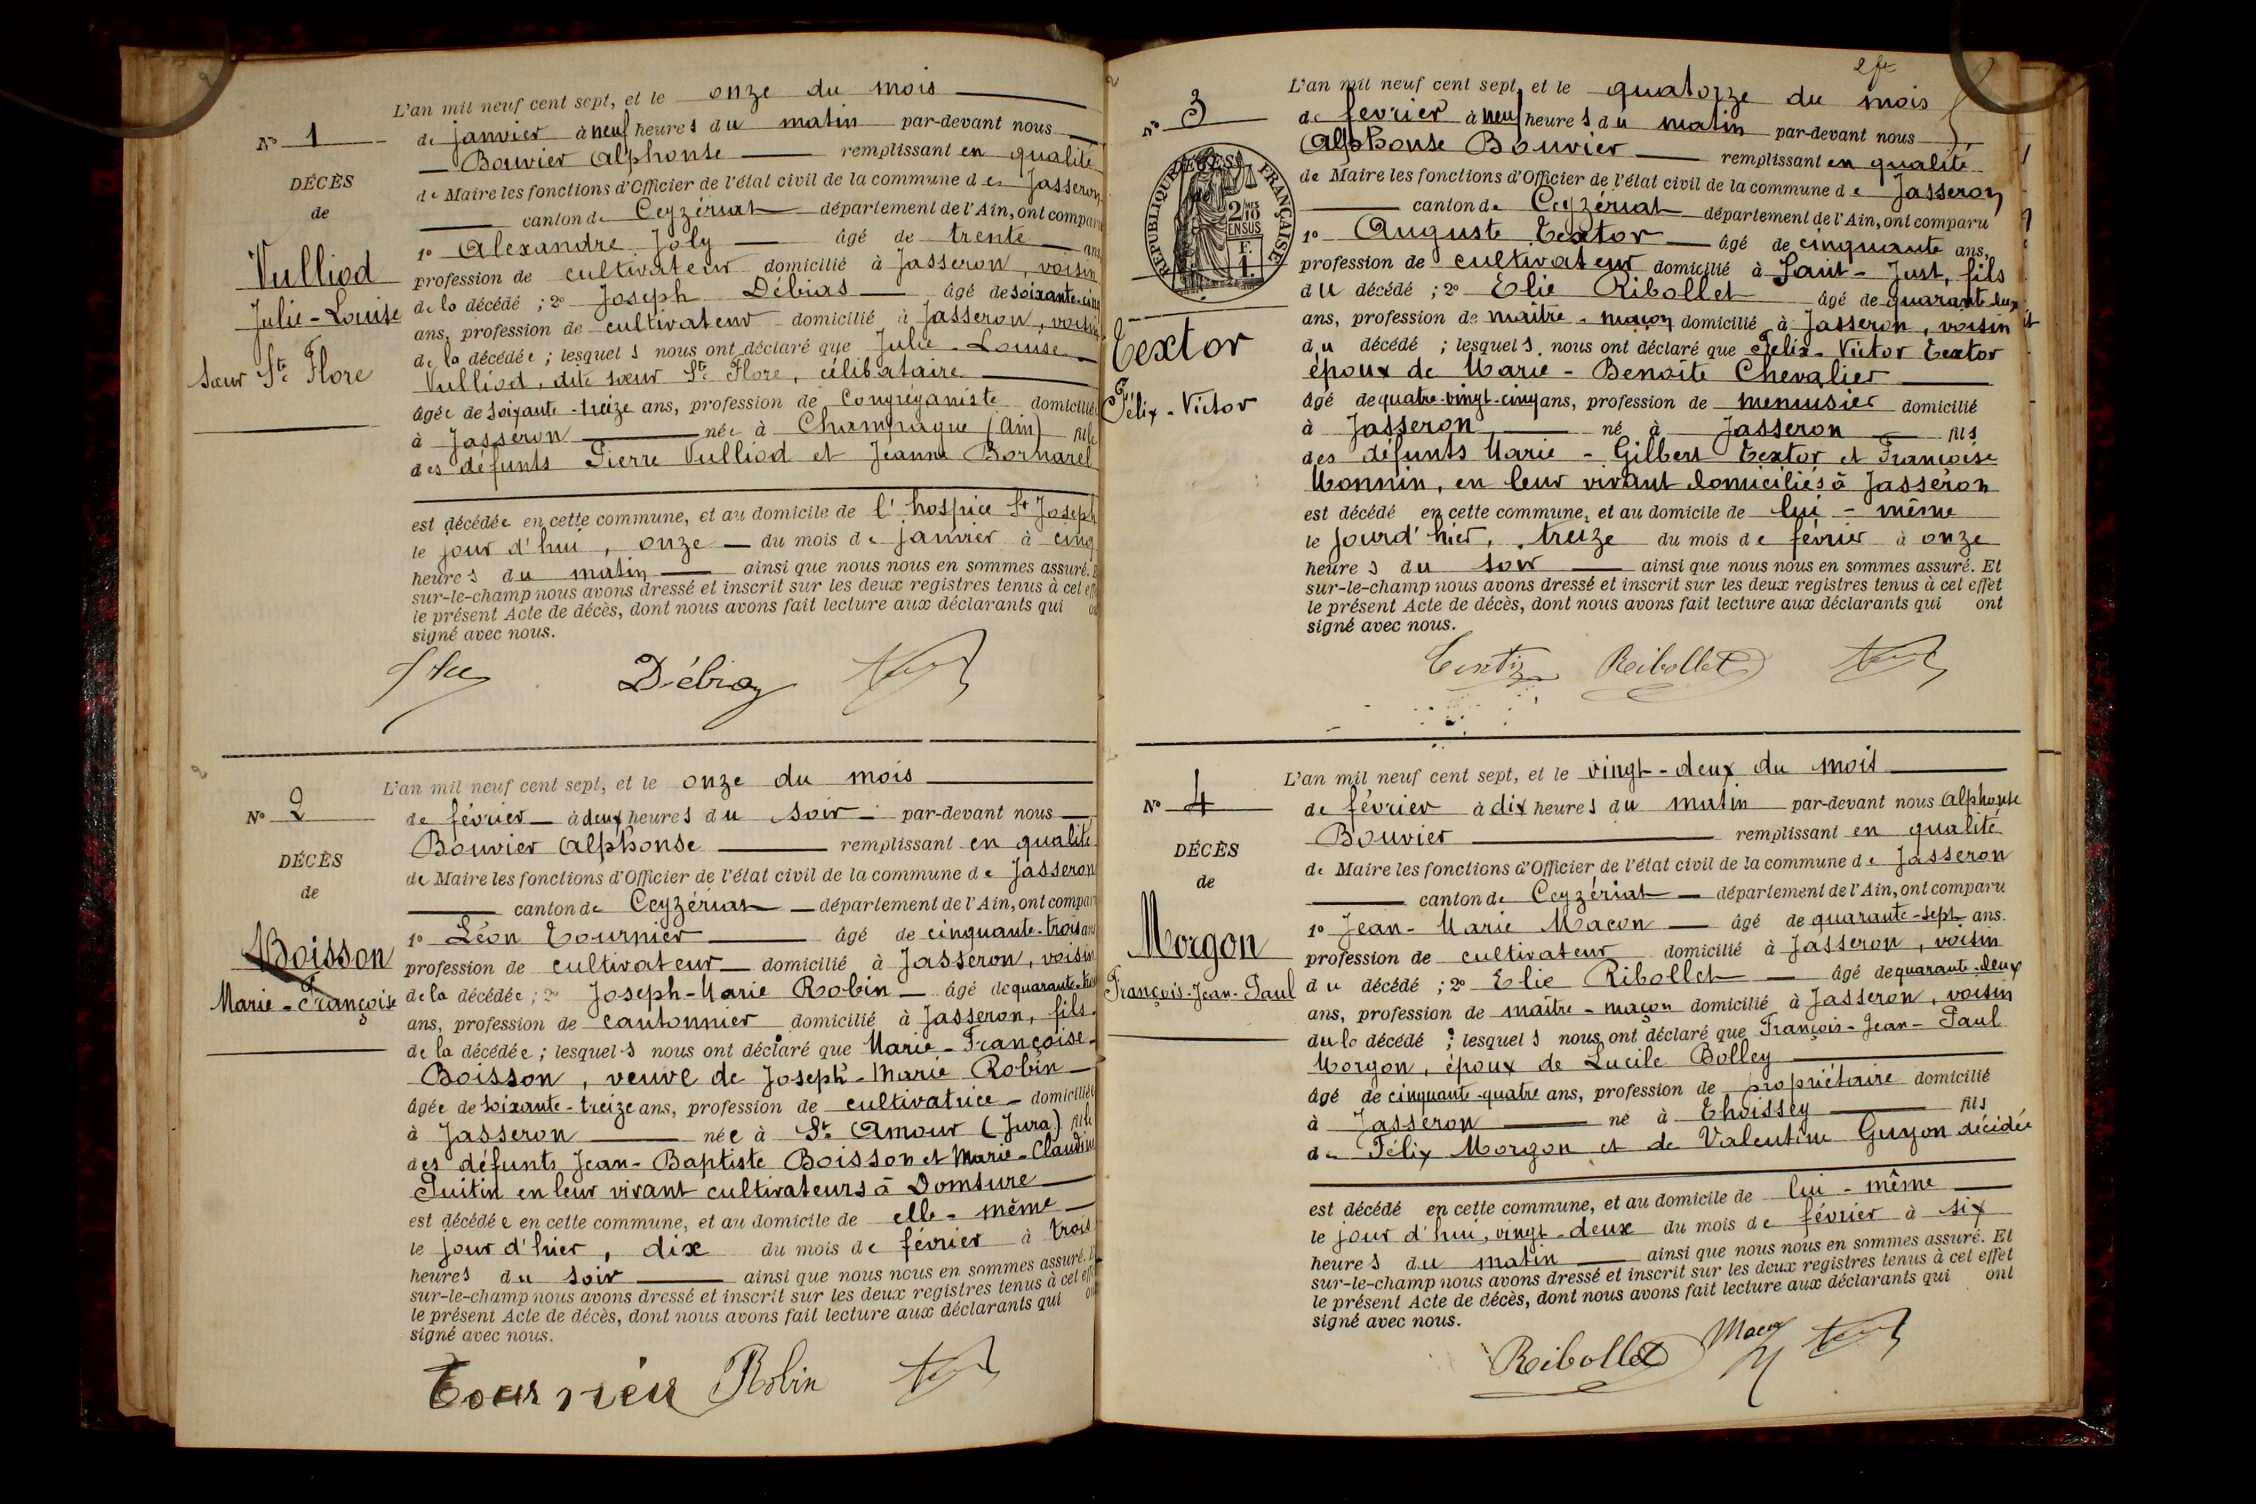 L'an mil neuf cent sept, et le onze du mois
N° 1
de janvier à neuf heures du matin par-devant nous
Bouvier Alphonse remplissant en qualité
DÉCÈS
de Maire les fonctions d'Officier de l'état civil de la commune de Jasseron
de
canton de Ceyzériat département de l'Ain, ont comparu
1° Alexandre Joly âgé de trente ans
Vulliod
profession de cultivateur domicilié à Jasseron, voisin
Julie-Louise
de la décédé ; 2° Joseph Débias âgé de soixante-cinq
ans, profession de cultivateur domicilié à Jasseron, voisin
de la décédée ; lesquels nous ont déclaré que Julie-Louise
sœur Ste Flore
Vulliod, dite sœur Ste Flore, célibataire
âgée de soixante-treize ans, profession de Congréganiste domiciliée
à Jasseron née à Champagne (Ain) fille
des défunts Pierre Vulliod et Jeanne Bornarel
est décédée en cette commune, et au domicile de l'hospice St Joseph
le jour d'hui, onze du mois de janvier à cinq
heures du matin ainsi que nous nous en sommes assuré. E
sur-le-champ nous avons dressé et inscrit sur les deux registres tenus à cet eff
le présent Acte de décès, dont nous avons fait lecture aux déclarants qui on
signé avec nous.
L'an mil neuf cent sept, et le onze du mois
N° 2
de février à deux heures du soir par-devant nous
Bouvier Alphonse remplissant en qualité
DÉCÈS
de Maire les fonctions d'Officier de l'état civil de la commune de Jasseron
de
canton de Ceyzériat département de l'Ain, ont comparu
1° Léon Tournier âgé de cinquante-trois ans
Boisson
profession de cultivateur domicilié à Jasseron, voisin
Marie-Françoise
de la décédée ; 2° Joseph-Marie Robin âgé de quarante-trois
ans, profession de cantonnier domicilié à Jasseron, fils
de la décédée ; lesquels nous ont déclaré que Marie-Françoise
Boisson, veuve de Joseph-Marie Robin
âgée de soixante-treize ans, profession de cultivatrice domiciliée
à Jasseron née à St. Amour (Jura) fille
des défunts Jean-Baptiste Boisson et Marie-Claudine
Puitin en leur vivant cultivateurs à Domsure
est décédée en cette commune, et au domicile de elle-même
le jour d'hier, dix du mois de février à trois
heures du soir ainsi que nous nous en sommes assuré. E
sur-le-champ nous avons dressé et inscrit sur les deux registres tenus à cet eff
le présent Acte de décès, dont nous avons fait lecture aux déclarants qui on
signé avec nous.
Tournier Robin
L'an mil neuf cent sept, et le quatorze du mois
N° 3
de février à neuf heures du matin par-devant nous
Alphonse Bouvier remplissant en qualité
de Maire les fonctions d'Officier de l'état civil de la commune de Jasseron
RÉPUBLIQUE FRANÇAISE
canton de Ceyzériat département de l'Ain, ont comparu
2/10 EN SUS
1° Auguste Textor âgé de cinquante ans,
profession de cultivateur domicilié à Saint-Just, fils
du décédé ; 2° Elie Ribollet âgé de quarante-deux
ans, profession de maître-maçon domicilié à Jasseron, voisin
Textor
du décédé ; lesquels nous ont déclaré que Félix-Victor Textor
époux de Marie-Benoîte Chevalier
Félix-Victor
âgé de quatre-vingt-cinq ans, profession de menuisier domicilié
à Jasseron né à Jasseron fils
des défunts Marie-Gilbert Textor et Françoise
Monnin, en leur vivant domiciliés à Jasseron
est décédé en cette commune, et au domicile de lui-même
le jourd'hier, treize du mois de février à onze
heures du soir ainsi que nous nous en sommes assuré. Et
sur-le-champ nous avons dressé et inscrit sur les deux registres tenus à cet effet
le présent Acte de décès, dont nous avons fait lecture aux déclarants qui ont
signé avec nous.
Ribollet
L'an mil neuf cent sept, et le vingt-deux du mois
N° 4
de février à dix heures du matin par-devant nous Alphonse
Bouvier remplissant en qualité
DÉCÈS
de Maire les fonctions d'Officier de l'état civil de la commune de Jasseron
de
canton de Ceyzériat département de l'Ain, ont comparu
1° Jean-Marie Macon âgé de quarante-sept ans.
Morgon
profession de cultivateur domicilié à Jasseron, voisin
François-Jean-Paul
du décédé ; 2° Elie Ribollet âgé de quarante-deux
ans, profession de maître-maçon domicilié à Jasseron, voisin
du décédé ; lesquels nous ont déclaré que François-Jean-Paul
Morgon, époux de Lucile Bolley
âgé de cinquante-quatre ans, profession de propriétaire domicilié
à Jasseron né à Thoissey fils
de Félix Morgon et de Valentine Guyon décédée
est décédé en cette commune, et au domicile de lui-même
le jour d'hui, vingt-deux du mois de février à six
heures du matin ainsi que nous nous en sommes assuré. Et
sur-le-champ nous avons dressé et inscrit sur les deux registres tenus à cet effet
le présent Acte de décès, dont nous avons fait lecture aux déclarants qui ont
signé avec nous.
Ribollet Macon